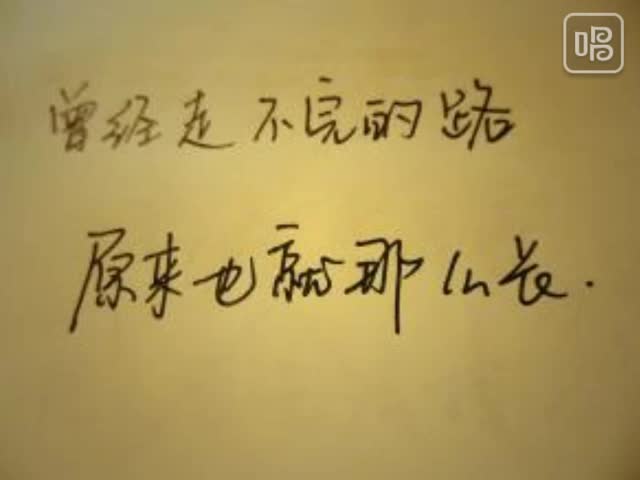 唱
曾经走不完的路
原来也就那么长.